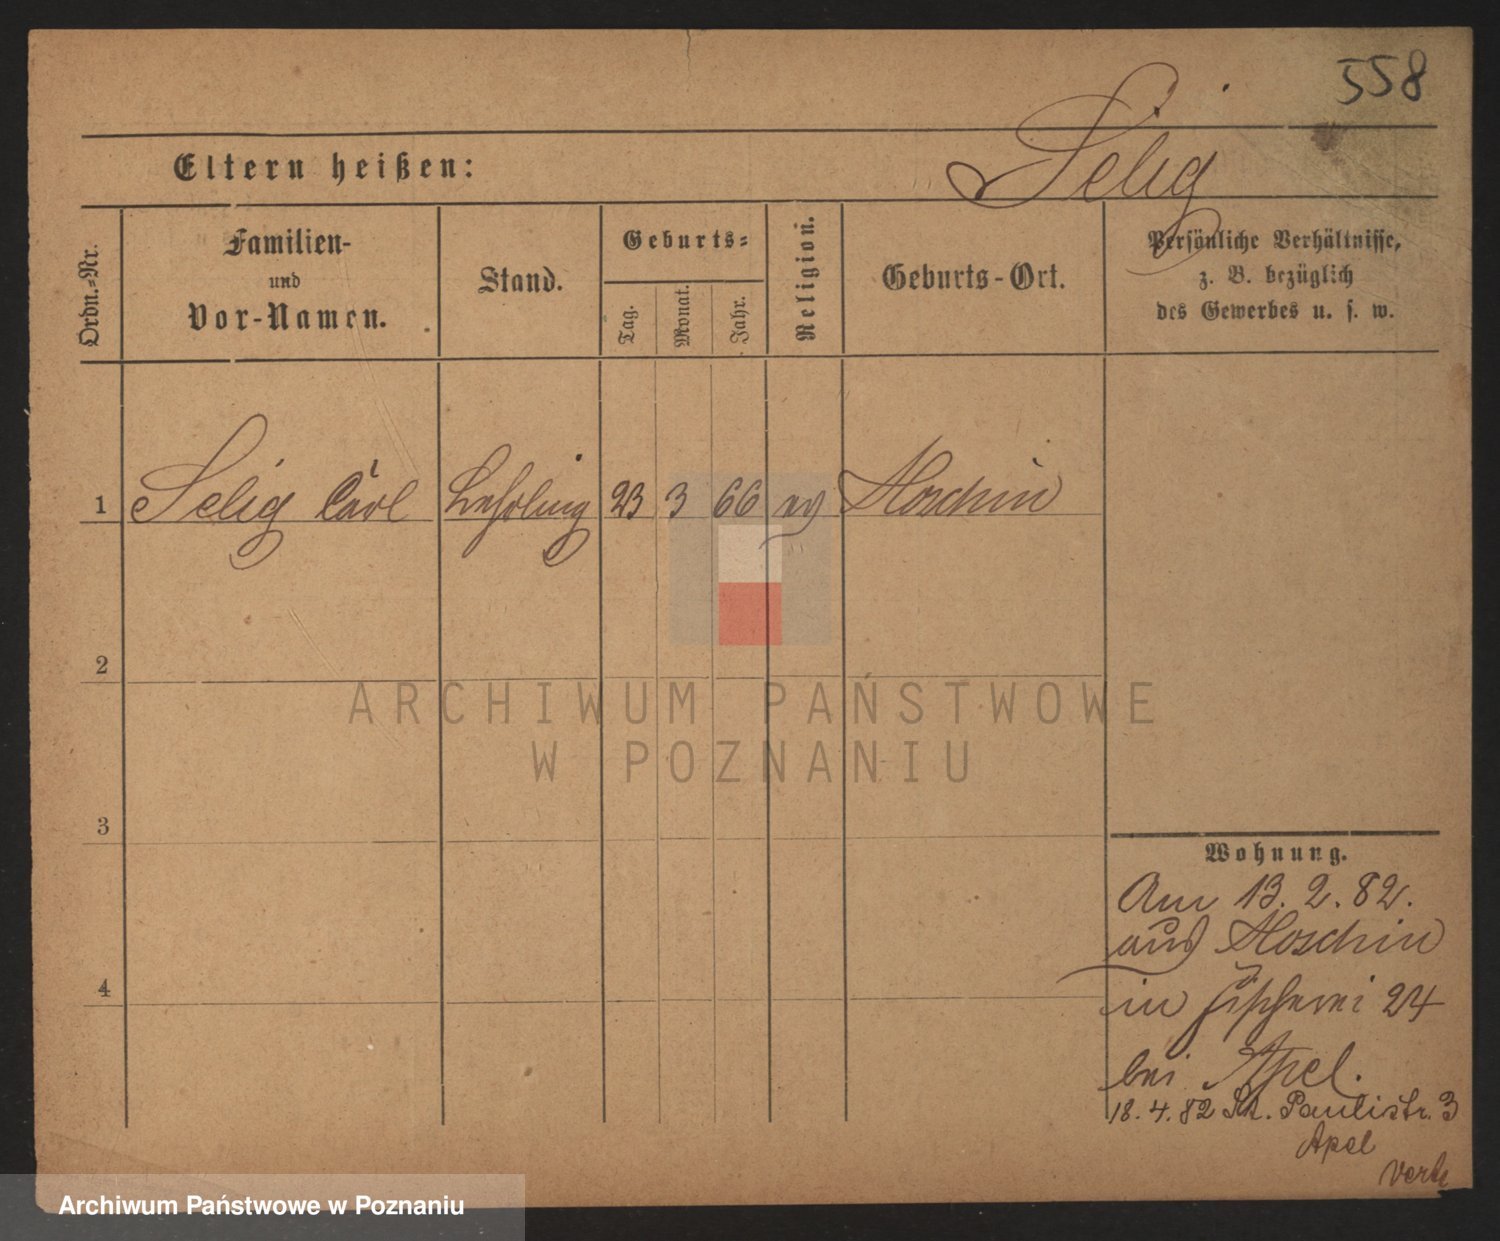 558
Selig
Eltern heißen:
Ordn.=Nr.
Familien-
und
Vor-Namen.
Stand.
Geburts=
Tag.
Monat.
Jahr.
Religion.
Geburts-Ort.
Persönliche Verhältnisse,
z. B. bezüglich
des Gewerbes u. s. w.
1 Selig Carl Lehrling 23 3 66 ev Moschin
2
3
4
Wohnung.
Am 13. 2. 82.
aus Moschin
in Fischerei 24
bei Apel.
18. 4. 82 St. Paulistr. 3
Apel
ARCHIWUM PAŃSTWOWE
W POZNANIU
Archiwum Państwowe w Poznaniu